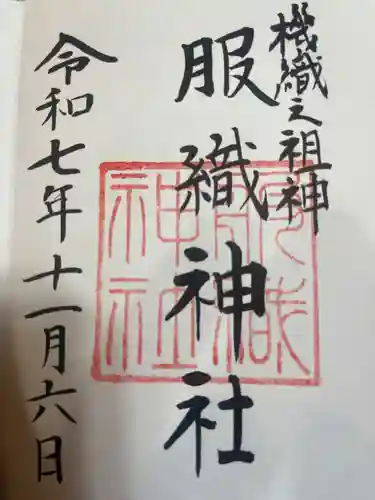 機織之祖神
服織神社
令和七年十一月六日
服織神社